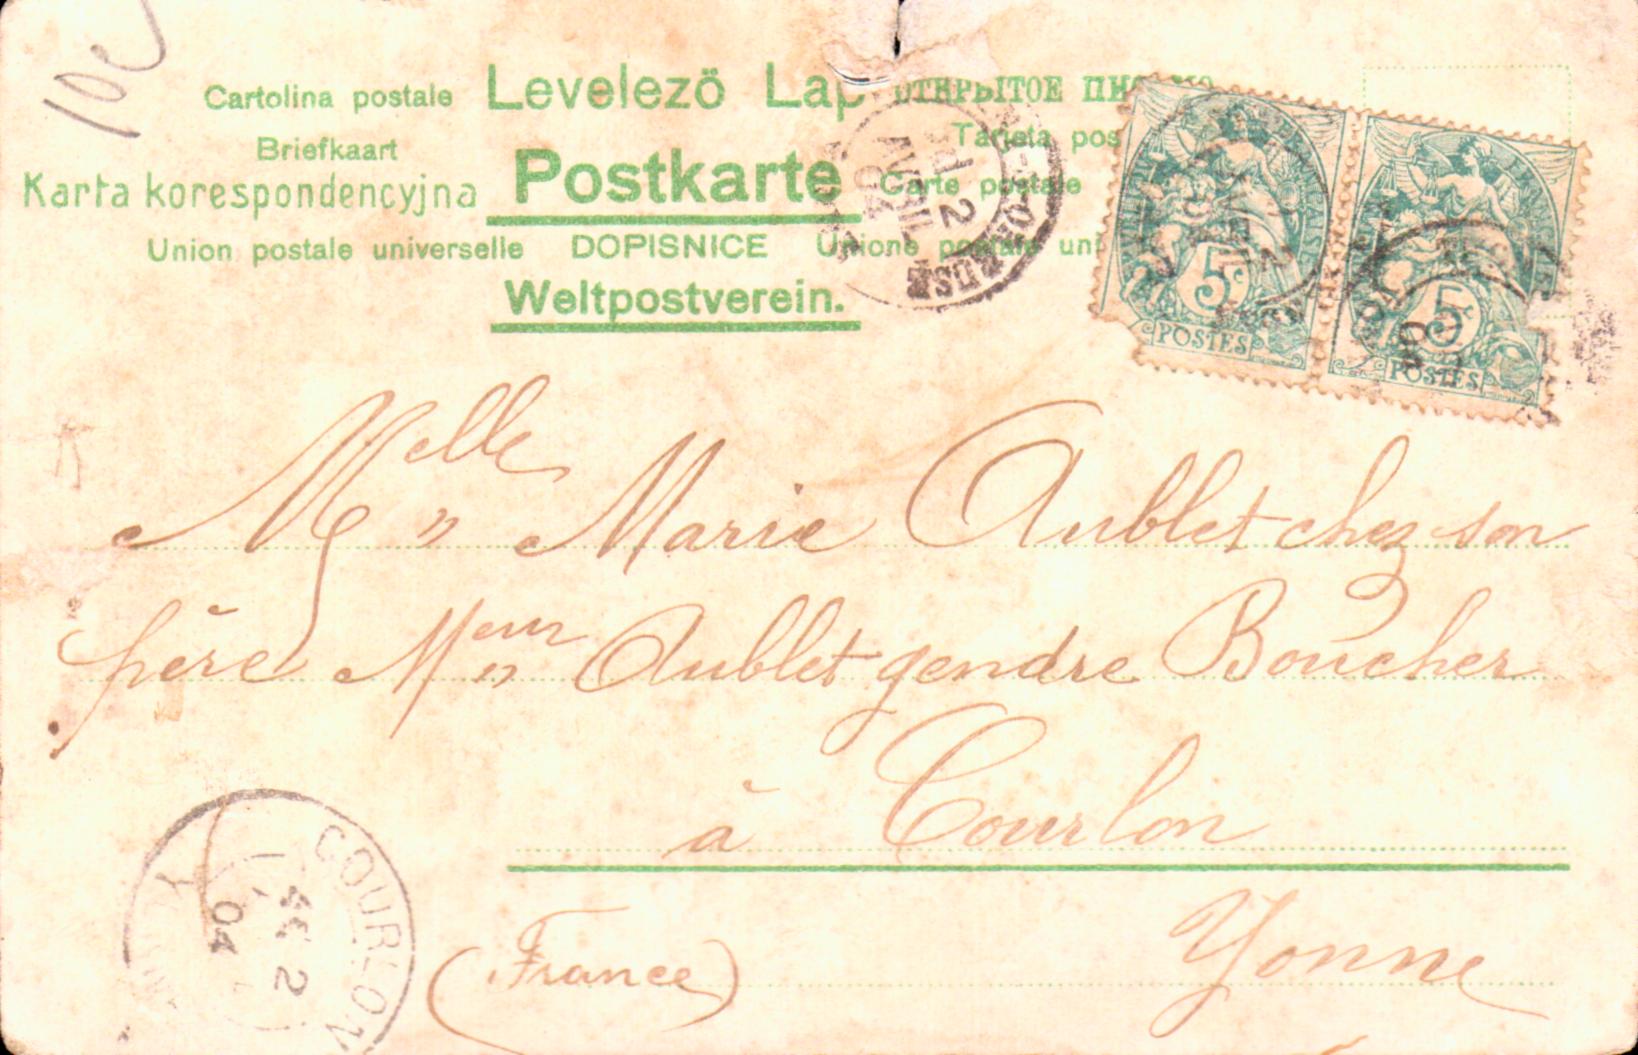 10c
Cartolina postale Levelezö Lap ОТКРЫТОЕ
Briefkaart Postkarte Tarjeta pos
Karta korespondencyjna Carte postale
Union postale universelle DOPISNICE Unione postale uni
Weltpostverein.
5c 5c
POSTES POSTES
2 AVRIL 04
Melle " Marie Aublet chez son
père Mr " Aublet gendre Boucher
à Courlon
Yonne
(France)
COURLON
2
04